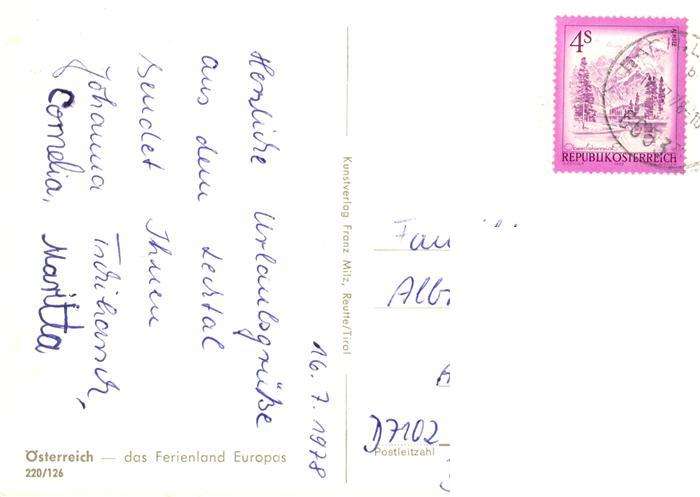 Herzliche Urlaubsgrüße
aus dem Lechtal
sendet Ihnen
Johanna
Cornelia, Maritta
16. 7. 1978
Kunstverlag Franz Milz, Reutte/Tirol
Österreich — das Ferienland Europas
220/126
4 S
REPUBLIK ÖSTERREICH
Fam
Alb
A
D7102
Postleitzahl